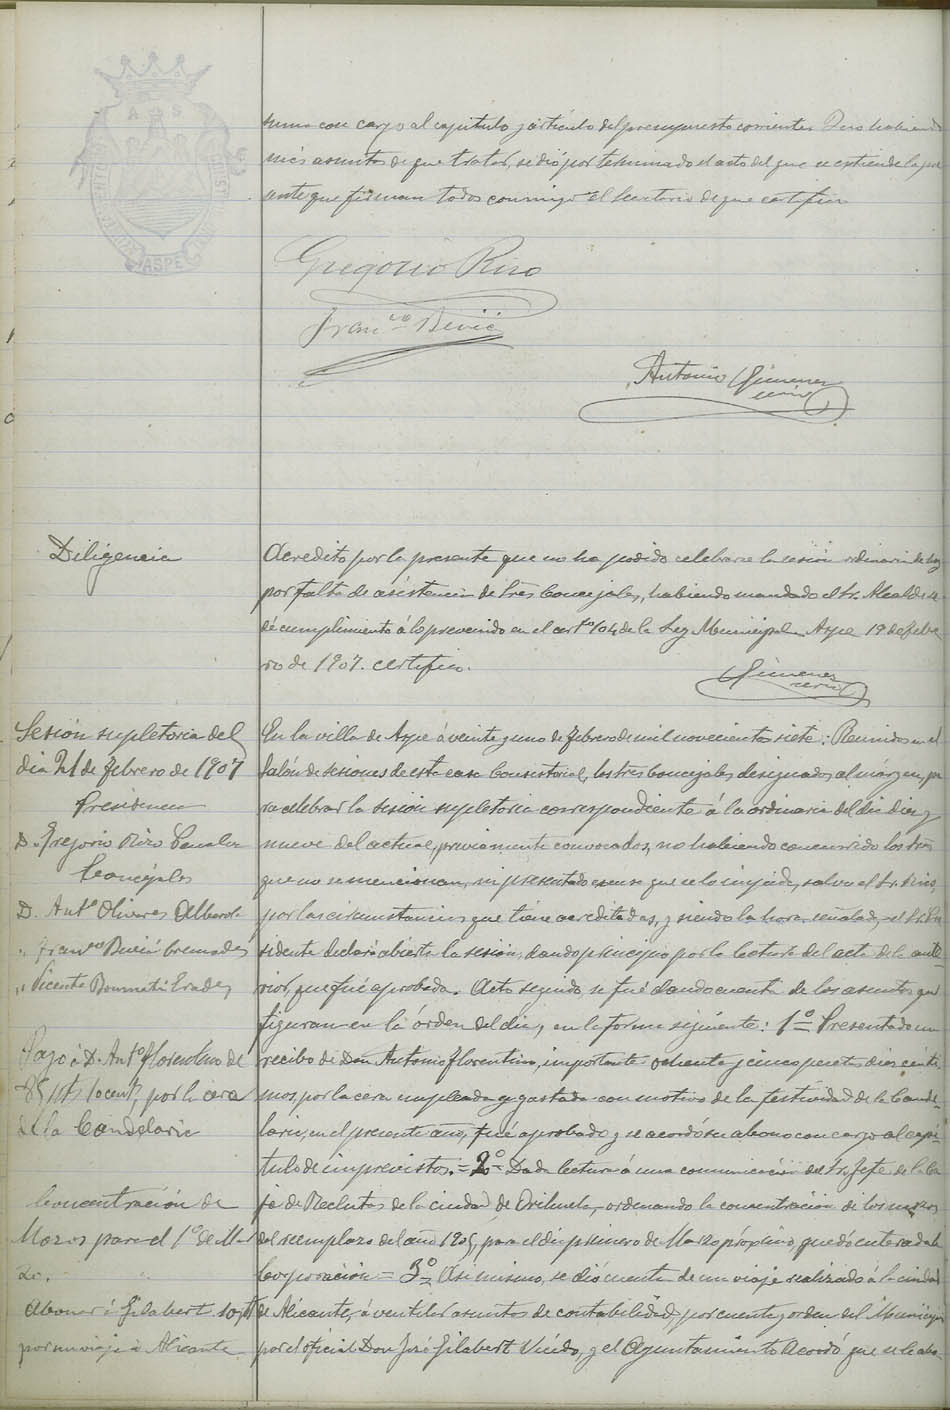 suma con cargo al capitulo y artículo del presupuesto corriente. Y no habiendo
más asuntos de que tratar, se dió por terminado el acto del que se extiende la pre
sente que firman todos conmigo el Secretario de que certifico
Gregorio Rizo
Franco Beviá
Antonio Gimenez
Diligencia
Acredito por la presente que no ha podido celebrarse la sesión ordinaria de hoy
por falta de asistencia de tres Concejales, habiendo mandado el Sr. Alcalde se
dé cumplimiento á lo prevenido en el arto 104 de la Ley Municipal. Aspe 19 de febre
ro de 1907. certifico.
Gimenez
Sesión supletoria del
dia 21 de febrero de 1907
Presidencia
D. Gregorio Rizo
Concejales
D. Anto Olivares Alberola
" Franco Beviá Cremades
" Vicente
Pago á D. Anto Florentino de
85 pts 10 cents por la cera
de la Candelaria
Concentración de
Mozos para el 1o de Mar
zo.
Abonar á Gilabert 10 pts
por un viaje á Alicante
En la villa de Aspe á veinte y uno de febrero de mil novecientos siete: Reunidos en el
Salón de sesiones de esta casa Consistorial, los tres Concejales designados al márgen, pa
ra celebrar la sesión supletoria correspondiente á la ordinaria del dia diez y
nueve del actual, previamente convocados, no habiendo concurrido los tres
que no se mencionan, ni presentado excusa que se lo impida, salvo el Sr.
por las circunstancias que tiene acreditadas, y siendo la hora señalada, el Sr. Pre
sidente declaró abierta la sesión, dando principio por la lectura del acta de la ante
rior, que fué aprobada. Acto seguido, se fué dando cuenta de los asuntos que
figuran en la órden del dia, en la forma siguiente: 1o Presentado un
recibo de Don Antonio Florentino, importante ochenta y cinco pesetas diez cénti
mos, por la cera empleada y gastada con motivo de la festividad de la Cande
laria, en el presente año, fué aprobado y se acordó su abono con cargo al capí
tulo de imprevistos. = 2o Dada lectura á una comunicación del Sr. Jefe de la Ca
ja de Reclutas de la ciudad de Orihuela, ordenando la concentración de los mozos
del reemplazo del año 190, para el dia primero de Marzo próximo, quedó enterada la
Corporación = 3o Asi mismo, se dió cuenta de un viaje realizado á la ciudad
de Alicante, á ventilar asuntos de contabilidad, por cuenta y orden del Municipio
por el oficial Don José Gilabert Vicedo, y el Ayuntamiento Acordó que se le abo